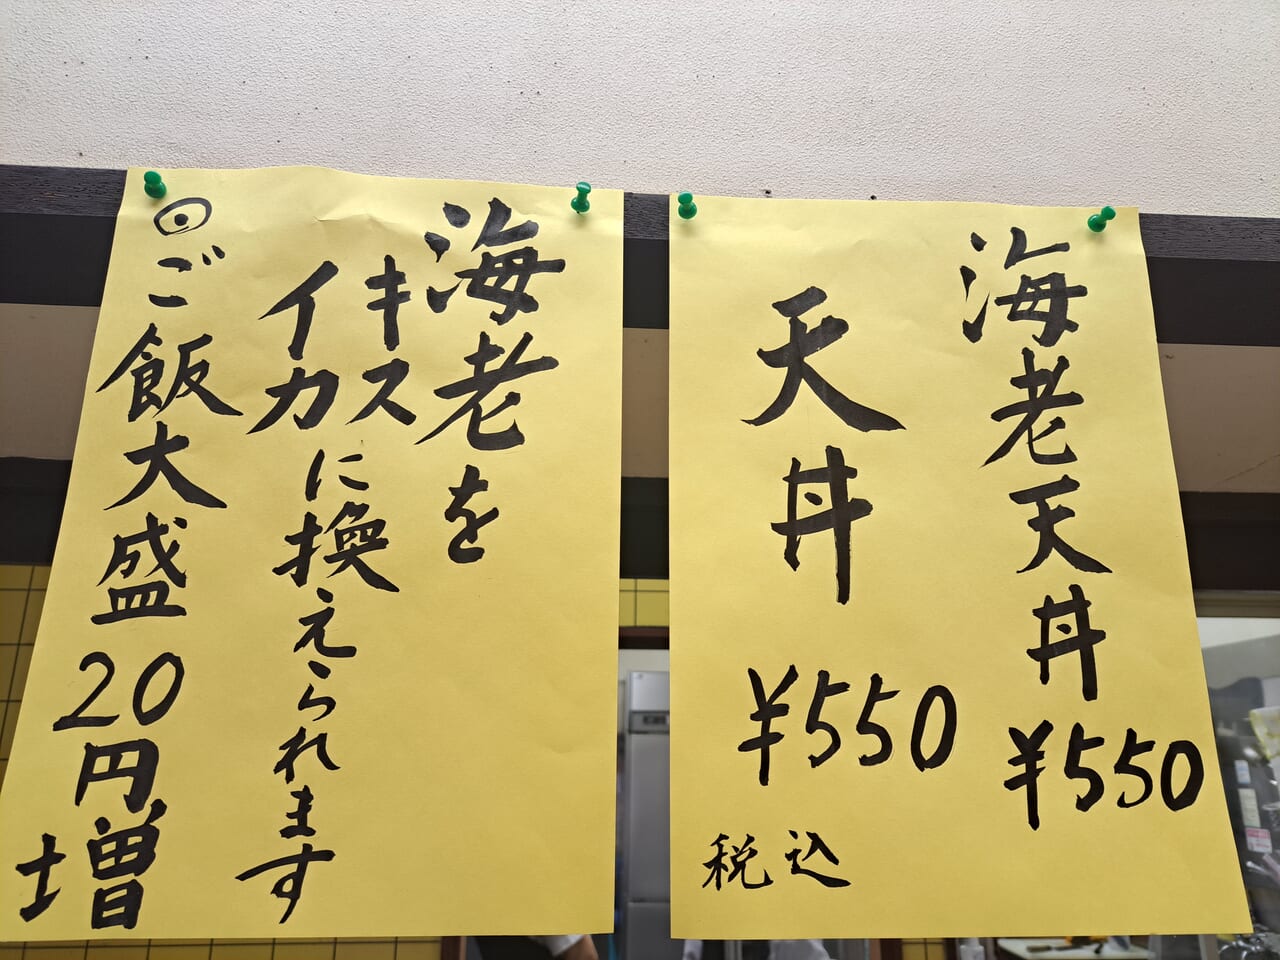 海老天丼 ¥550
天丼 ¥550
税込
海老を
キス
イカに換えられます
◉ご飯大盛20円増